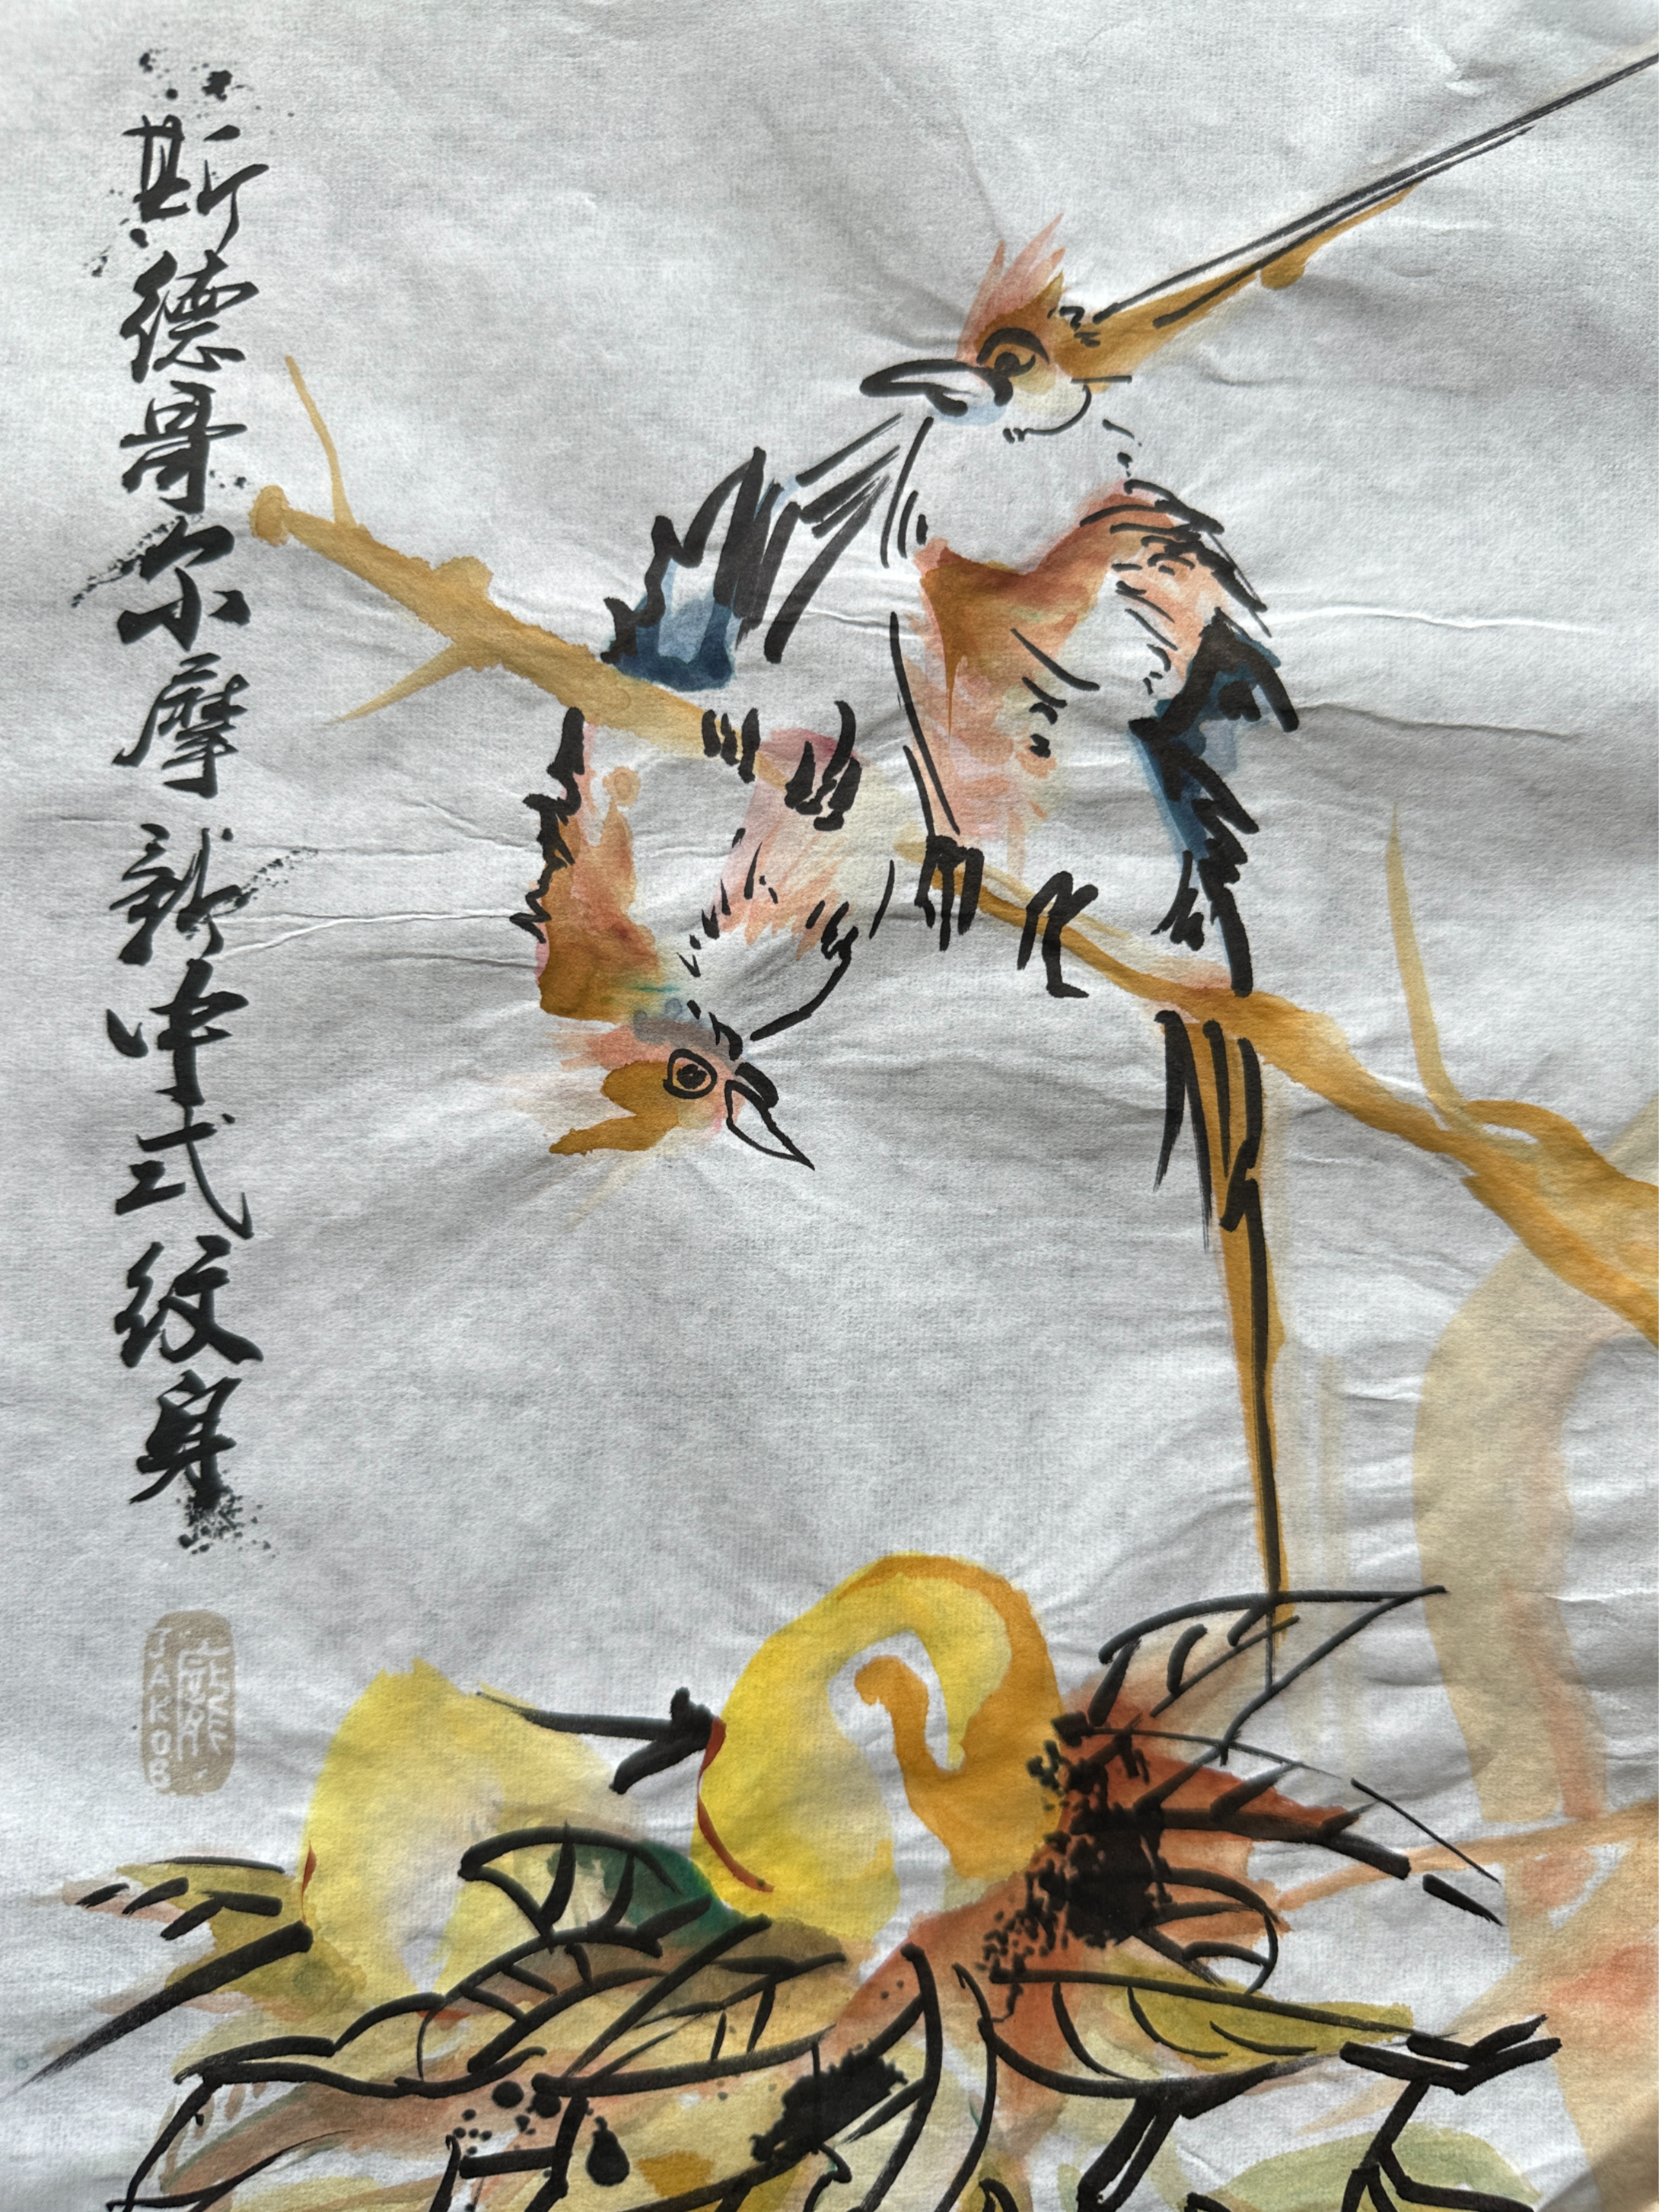 斯德哥尔摩 新中式纹身
JAKOB